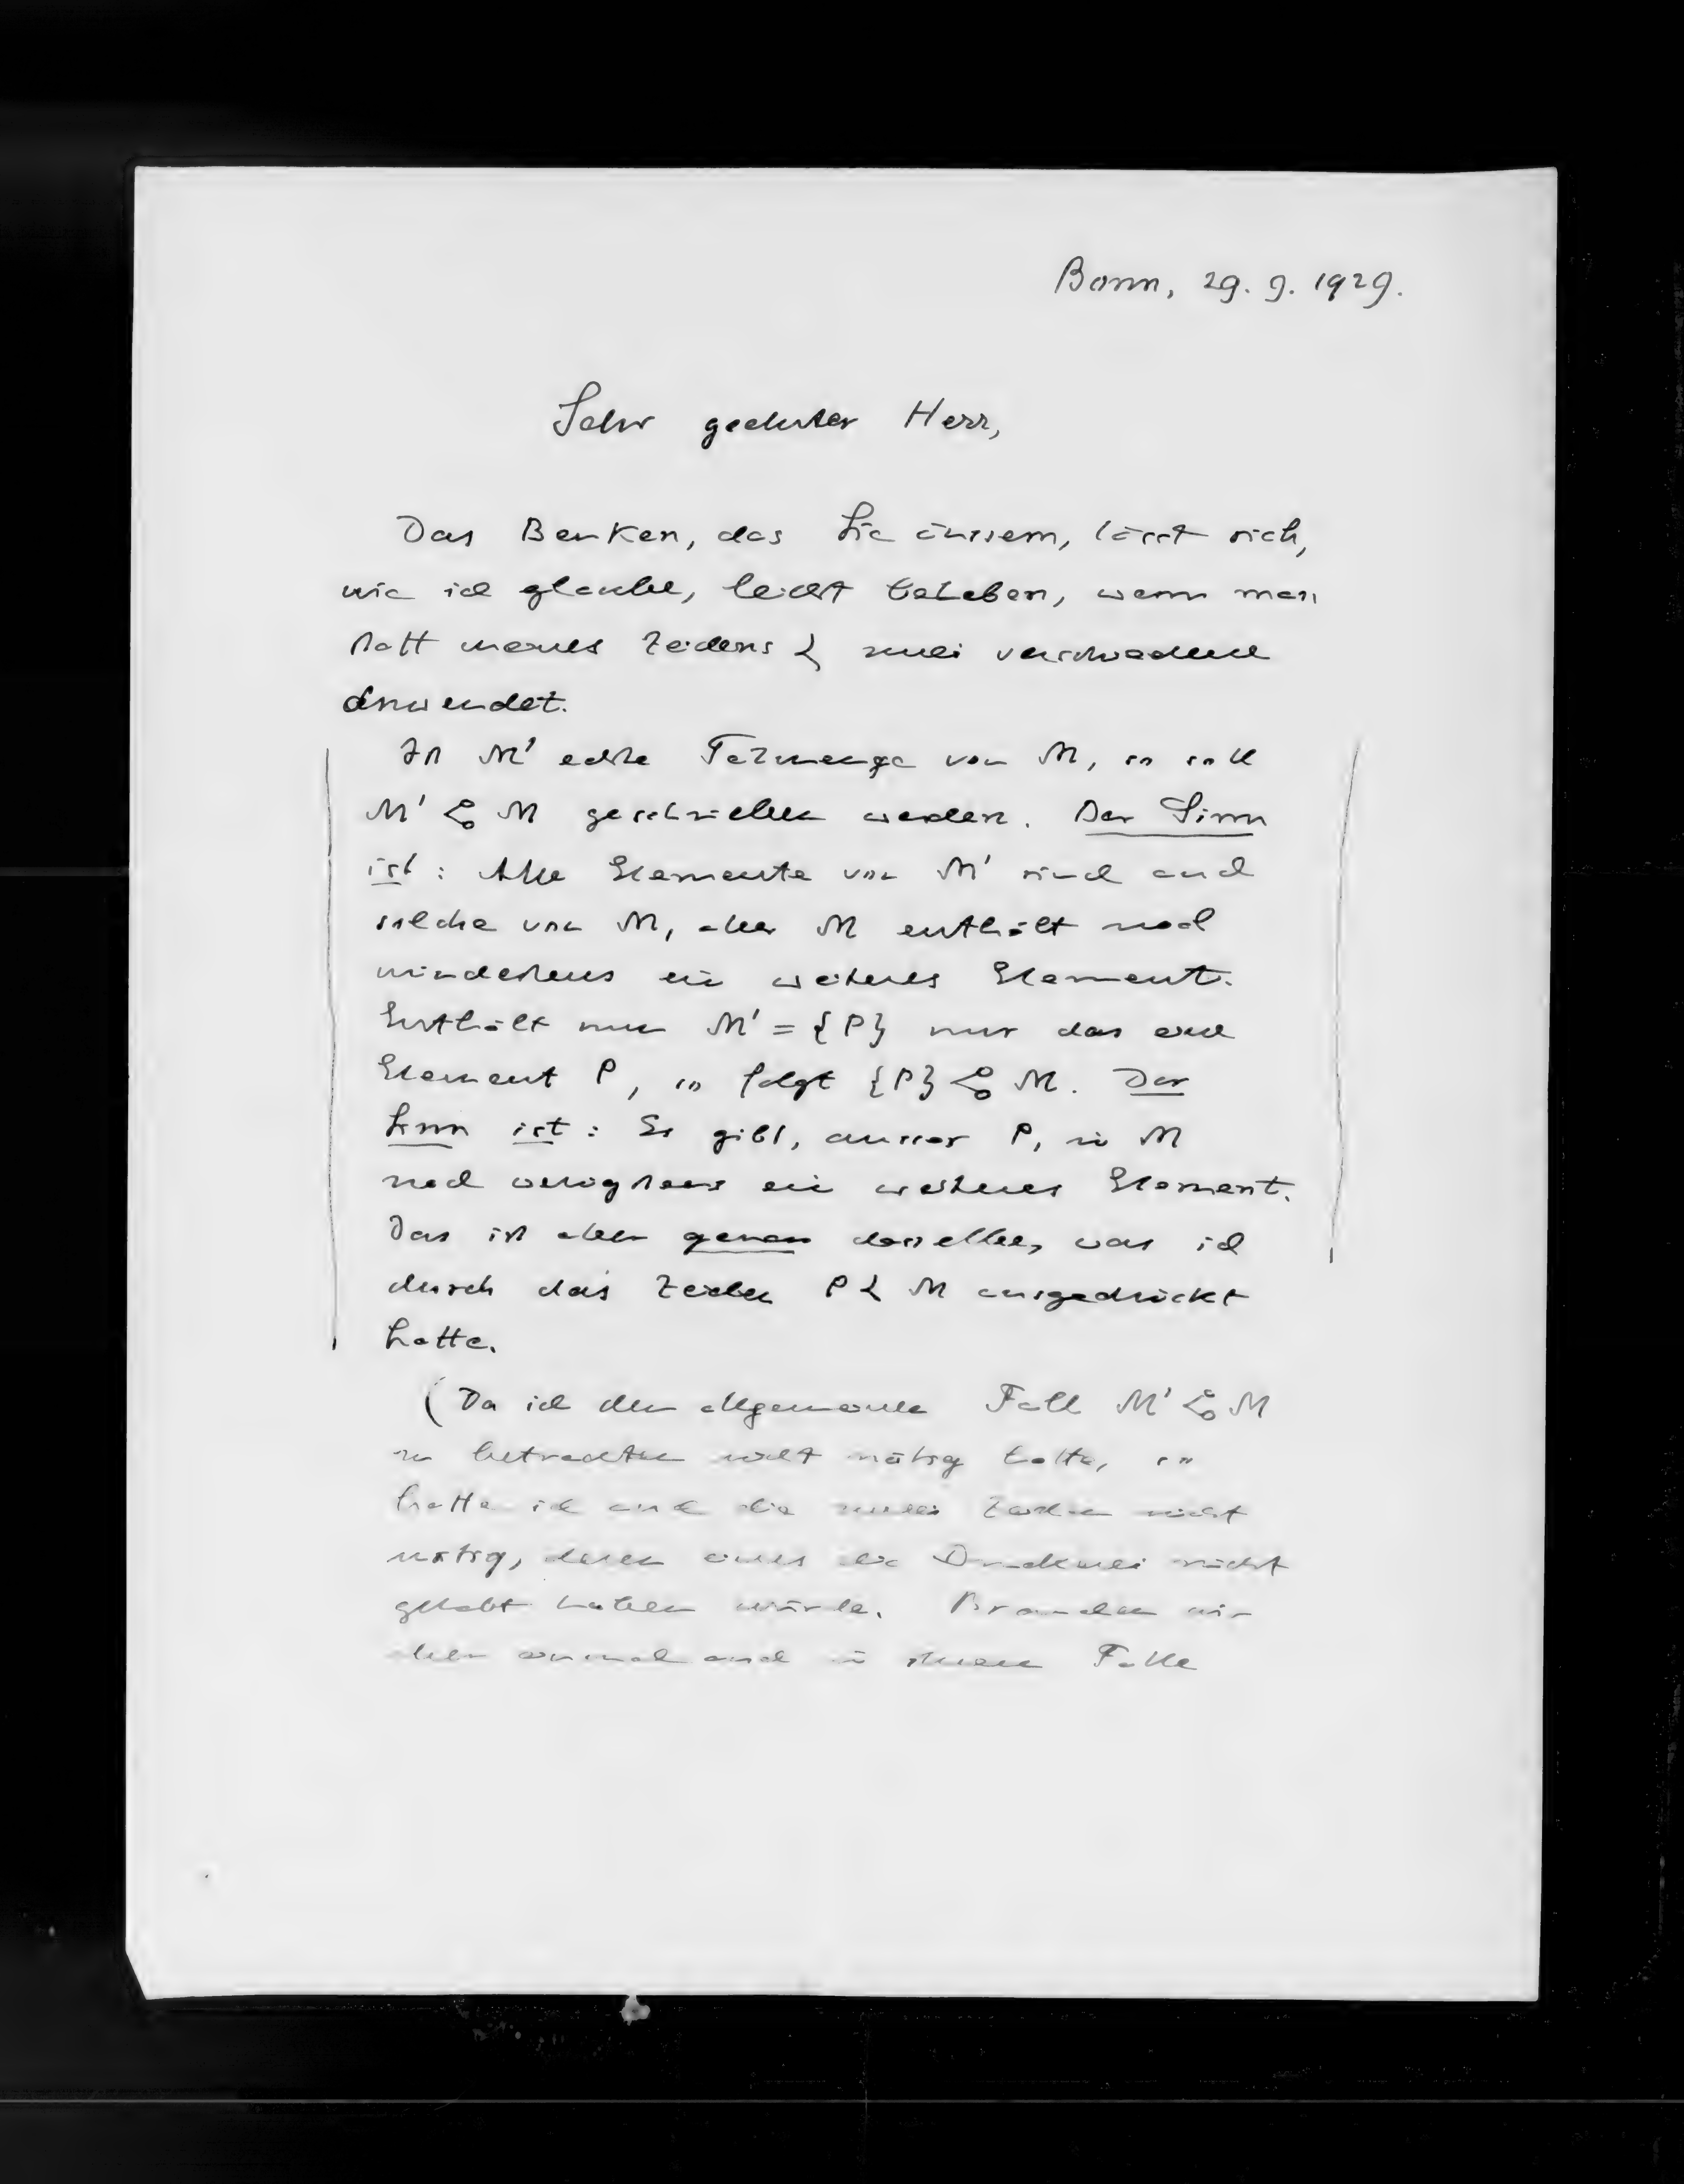 Bonn, 29. 9. 1929.
Sehr geehrter Herr,
Das Benken, das Sie äussern, lässt sich,
wie ich glaube, leicht beheben, wenn man
statt meines Zeichens ⥽ zwei verschiedene
anwendet.
Ist M' echte Teilmenge von M, so soll
M' ⥽ M geschrieben werden. Der Sinn
ist: Alle Elemente von M' sind auch
solche von M, aber M enthält noch
mindestens ein weiteres Element.
Enthält nun M' = {P} nur das eine
Element P, so folgt {P} ⥽ M. Der
Sinn ist: Es gibt, ausser P, in M
noch wenigstens ein weiteres Element.
Das ist aber genau dasselbe, was ich
durch das Zeichen P ⥽ M ausgedrückt
hatte.
(Da ich den allgemeinen Fall M' ⥽ M
zu betrachten nicht nötig hatte, so
hatte ich auch die zwei Zeichen nicht
nötig, deren eines die Druckerei nicht
gehabt haben würde. Brauchen wir
aber einmal auch in Falle